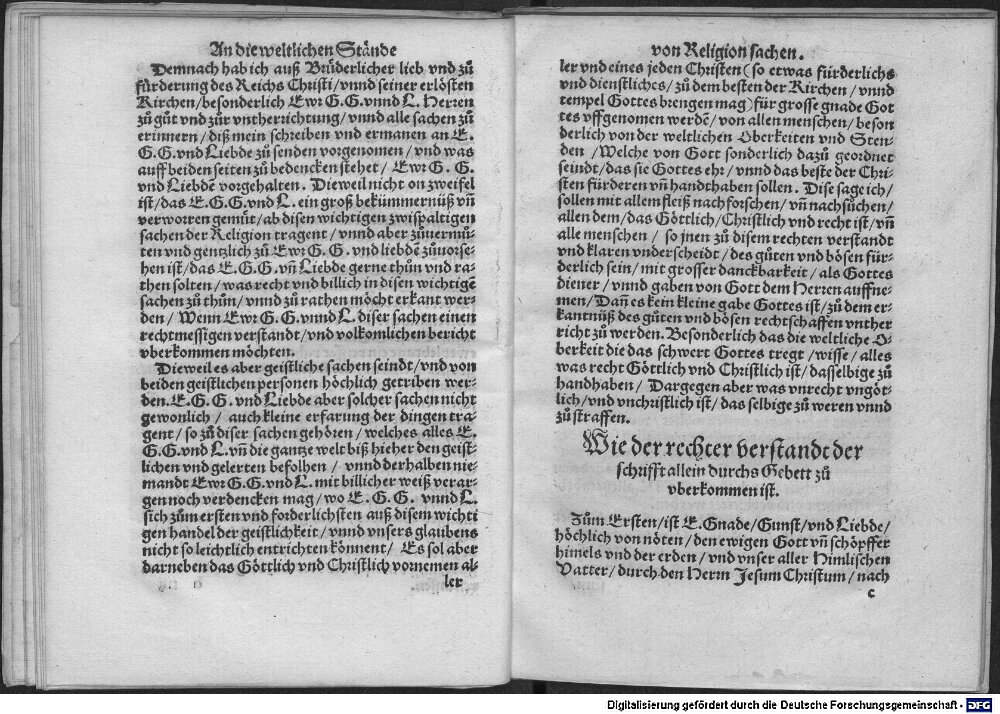 An die weltlichen Stånde
Demnach hab ich auß Brüderlicher lieb vnd zů
fürderung des Reichs Christi/vnnd seiner erlösten
Kirchen/besonderlich Ewr G.G.vnnd L. Herren
zů gůt vnd zůr vntherrichtung/vnnd alle sachen zů
erinnern/ diß mein schreiben vnd ermanen an E.
G.G.vnd Liebde zů senden vorgenomen/vnd was
auff beiden seiten zů bedencken stehet/ Ewr G. G.
vnd Liebdē vorgehalten. Dieweil nicht on zweifel
ist/das E.G.G.vnd L. ein groß bekümmernüß vñ
verworren gemüt/ab disen wichtigen zwispaltigen
sachen der Religion tragent/vnnd aber zůuermů-
ten vnd gentzlich zů Ewr G.G.vnd liebdē zůuorse-
hen ist/das E.G.G.vñ Liebde gerne thůn vnd ra-
then solten/was recht vnd billich in disen wichtigē
sachen zů thůn/vnnd zů rathen möcht erkant wer-
den/ Wenn Ewr G.G.vnnd L. diser sachen einen
rechtmessigen verstandt/vnd volkomlichen bericht
vberkommen möchten.
Dieweil es aber geistliche sachen seindt/vnd von
beiden geistlichen personen höchlich getriben wer-
den. E.G.G. vnd Liebde aber solcher sachen nicht
gewonlich/ auch kleine erfarung der dingen tra-
gent/so zů diser sachen gehören/welches alles E.
G.G.vnd L.vñ die gantze welt biß hieher den geist-
lichen vnd gelerten befolhen/ vnnd derhalben nie-
mandt Ewr G.G.vnd L. mit billicher weiß verar-
gen noch verdencken mag/wo E.G.G. vnnd L.
sich zům ersten vnd forderlichsten auß disem wichti
gen handel der geistlichkeit/vnnd vnsers glaubens
nicht so leichtlich entrichten könnent/ Es sol aber
darneben das Göttlich vnd Christlich vornemen al-
ler
von Religion sachen.
ler vnd eines jeden Christen(so etwas fürderlichs
vnd dienstliches/zů dem besten der Kirchen/vnnd
tempel Gottes brengen mag)für grosse gnade Got
tes vffgenomen werdē/von allen menschen/beson
derlich von der weltlichen Oberkeiten vnd Sten-
den/Welche von Gott sonderlich dazů geordnet
seindt/das sie Gottes ehr/vnnd das beste der Chri-
sten fürderen vñ handthaben sollen. Dise sage ich/
sollen mit allem fleiß nachforschen/vñ nachsůchen/
allen dem/das Göttlich/Christlich vnd recht ist/vñ
alle menschen/ so jnen zů disem rechten verstandt
vnd klaren vnderscheidt/des gůten vnd bösen für-
derlich sein/mit grosser danckbarkeit/als Gottes
diener/vnnd gaben von Gott dem Herren auffne-
men/Dañ es kein kleine gabe Gottes ist/zů dem er-
kantnüß des gůten vnd bösen rechtschaffen vnther
richt zů werden. Besonderlich das die weltliche O-
berkeit die das schwert Gottes tregt/wisse/alles
was recht Göttlich vnd Christlich ist/dasselbige zů
handhaben/ Dargegen aber was vnrecht vngöt-
lich/vnd vnchristlich ist/das selbige zů weren vnnd
zů straffen.
Wie der rechter verstandt der
schrifft allein durchs Gebett zů
vberkommen ist.
Zům Ersten/ist E.Gnade/Gunst/vnd Liebde/
höchlich von nöten/den ewigen Gott vñ schöpffer
himels vnd der erden/vnd vnser aller Himlischen
Vatter/durch den Herrn Jesum Christum/nach
c
Digitalisierung gefördert durch die Deutsche Forschungsgemeinschaft - DFG